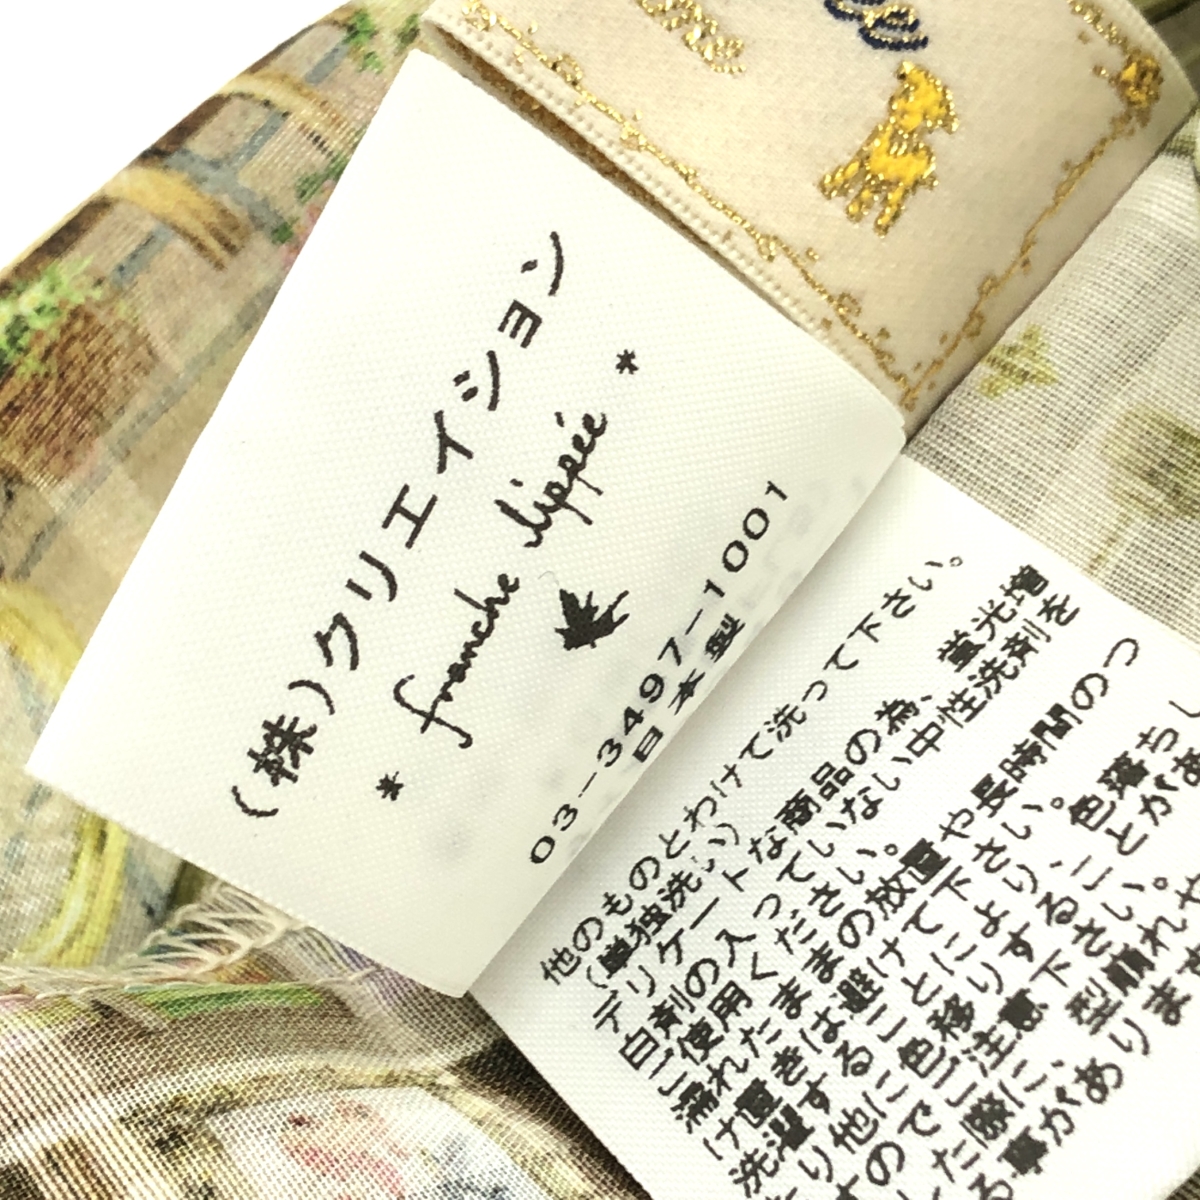 (株)クリエイション
* franche lippée *
03-3497-1001
日本製
他のものとわけて洗って下さい。
(単独洗い)
デリケートな商品の為、蛍光増
白剤の入っていない中性洗剤を
ご使用ください。
濡れたままの放置や長時間のつ
け置きは避けて下さい。
洗濯することにより、色落ちし
たり他に色移りすることがあ
すのでご注意下さい。
た際に、型崩れや
る事があります